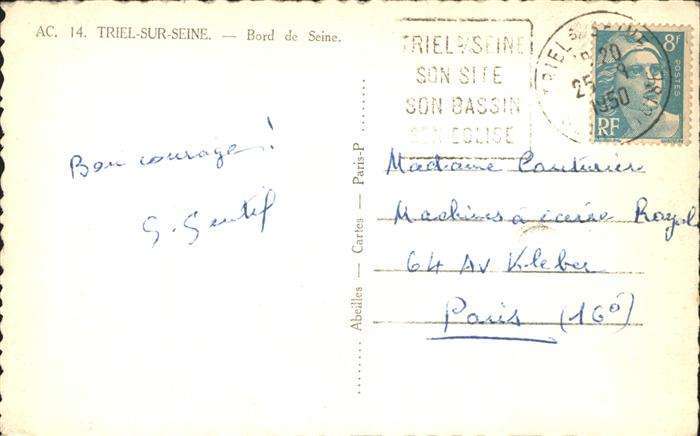 AC. 14. TRIEL-SUR-SEINE. — Bord de Seine.
TRIEL S/SEINE
SON SITE
SON BASSIN
SON EGLISE
TRIEL S
20
25
1950
8F
POSTES
RF
Bon courage!
G. Gentil
Abeilles — Cartes — Paris-P
Madame Couturier
Machines à écrire Royal
64 Av Kleber
Paris (16è)